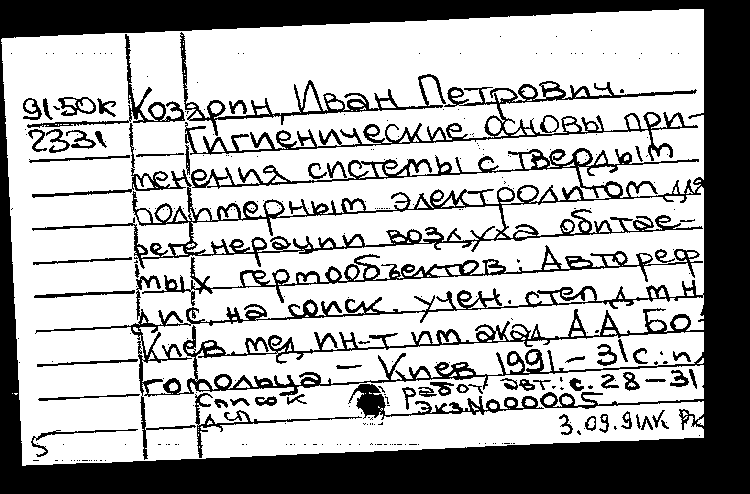 91-50К Козярин, Иван Петрович.
2331 Гигиенические основы при-
менения системы с твердым
полимерным электролитом для
регенерации воздуха обитае-
мых гермообъектов: Автореф
дис. на соиск. учен. степ. д.м.н
Киев. мед. ин-т им. акад. А.А. Бо-
гомольца. – Киев, 1991. – 31с.: ил
Список работ авт.: с. 28–31.
ДСП. Экз. №000005.
3.09.91
5